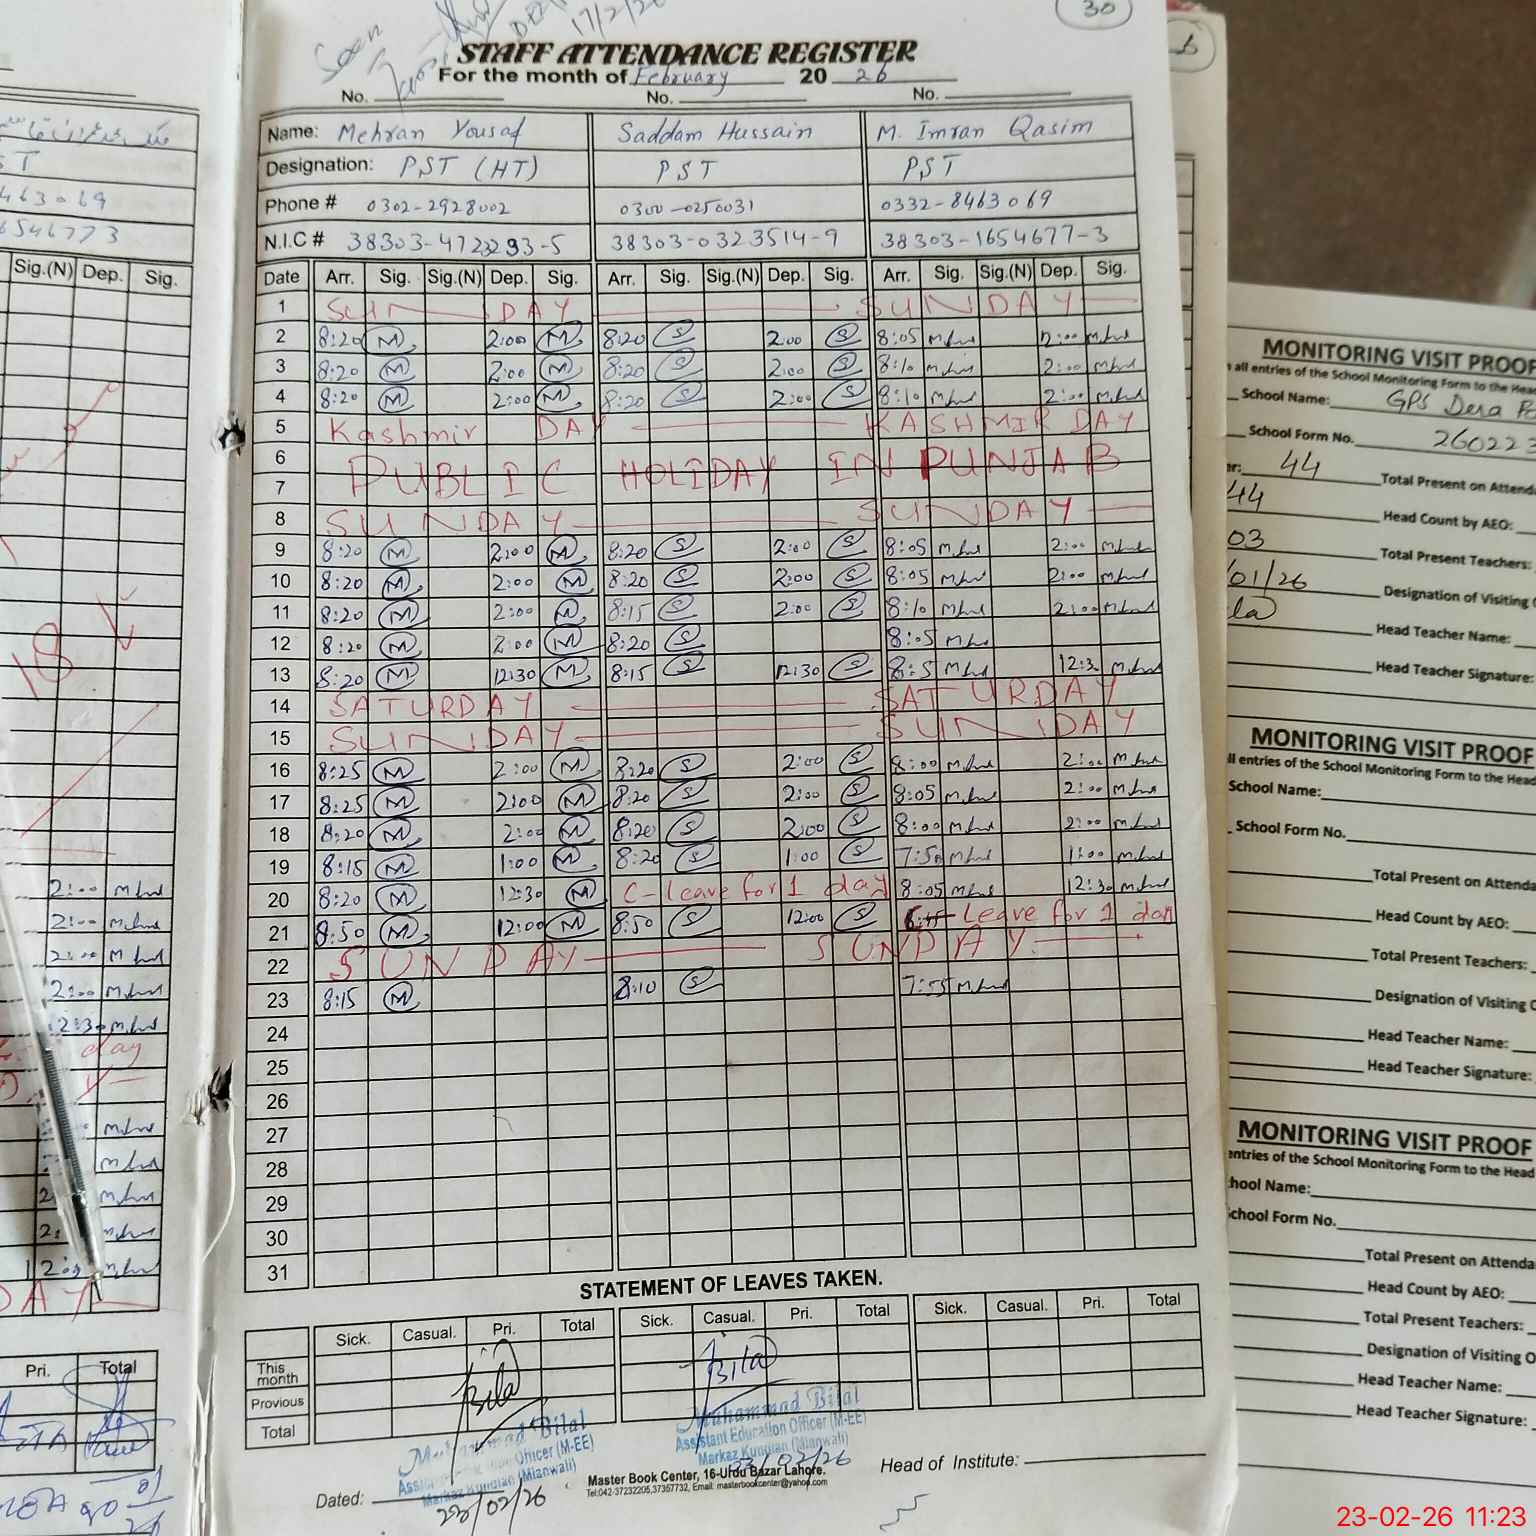 Seen
17/2/26
30
STAFF ATTENDANCE REGISTER
For the month of February 20 26
No. No. No.
Name: Mehran Yousaf Saddam Hussain M. Imran Qasim
Designation: PST (HT) PST PST
Phone # 0302-2928002 0300-0250031 0332-8463069
N.I.C # 38303-4723293-5 38303-0323514-9 38303-1654677-3
Date Arr. Sig. Sig.(N) Dep. Sig. Arr. Sig. Sig.(N) Dep. Sig. Arr. Sig. Sig.(N) Dep. Sig.
1 SUNDAY SUNDAY
2 8:20 M 2:00 M 8:20 S 2:00 S 8:05 2:00
3 8:20 M 2:00 M 8:20 S 2:00 S 8:10 2:00
4 8:20 M 2:00 M 8:20 S 2:00 S 8:10 2:00
5 Kashmir DAY KASHMIR DAY
6
PUBLIC HOLIDAY IN PUNJAB
7
8 SUNDAY SUNDAY
9 8:20 M 2:00 M 8:20 S 2:00 S 8:05 2:00
10 8:20 M 2:00 M 8:20 S 2:00 S 8:05 2:00
11 8:20 M 2:00 M 8:15 S 2:00 S 8:10 2:00
12 8:20 M 2:00 M 8:20 S 8:05
13 8:20 M 12:30 M 8:15 S 12:30 S 8:5 12:30
14 SATURDAY SATURDAY
15 SUNDAY SUNDAY
16 8:25 M 2:00 M 8:20 S 2:00 S 8:00 2:00
17 8:25 M 2:00 M 8:20 S 2:00 S 8:05 2:00
18 8:20 M 2:00 M 8:20 S 2:00 S 8:00 2:00
19 8:15 M 1:00 M 8:20 S 1:00 S 7:50 1:00
20 8:20 M 12:30 M C-leave for 1 day 8:05 12:30
21 8:50 M 12:00 M 8:50 S 12:00 S Leave for 1 day
22 SUNDAY SUNDAY
23 8:15 M 8:10 S 7:55
24
25
26
27
28
29
30
31
STATEMENT OF LEAVES TAKEN.
Sick. Casual. Pri. Total Sick. Casual. Pri. Total Sick. Casual. Pri. Total
This month
Previous
Total
Bilal Bilal
Muhammad Bilal
Assistant Education Officer (M-EE)
Markaz Kundian (Mianwali)
Muhammad Bilal
Assistant Education Officer (M-EE)
Markaz Kundian (Mianwali)
23/02/26
Master Book Center, 16-Urdu Bazar Lahore.
Tel:042-37232205,37357732, Email: masterbookcenter@yahoo.com
Head of Institute:
Dated: 23/02/26
Sig.(N) Dep. Sig.
18
2:00
2:00
2:00
2:00
12:30
day
Pri. Total
MONITORING VISIT PROOF
all entries of the School Monitoring Form to the Head
School Name: GPS Dera
School Form No. 260223
44 Total Present on Attenda
44 Head Count by AEO:
03 Total Present Teachers:
/01/26 Designation of Visiting O
Head Teacher Name:
Head Teacher Signature:
MONITORING VISIT PROOF
all entries of the School Monitoring Form to the Head
School Name:
School Form No.
Total Present on Attenda
Head Count by AEO:
Total Present Teachers:
Designation of Visiting O
Head Teacher Name:
Head Teacher Signature:
MONITORING VISIT PROOF
entries of the School Monitoring Form to the Head
School Name:
School Form No.
Total Present on Attenda
Head Count by AEO:
Total Present Teachers:
Designation of Visiting O
Head Teacher Name:
Head Teacher Signature:
23-02-26 11:23